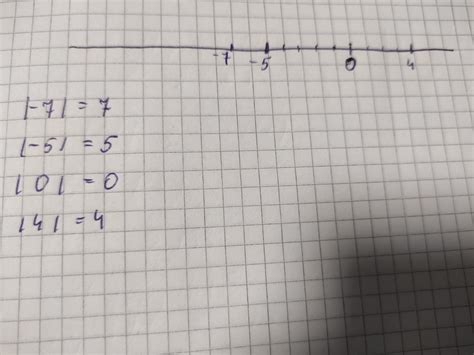 -7 -5 0 4
|-7| = 7
|-5| = 5
|0| = 0
|4| = 4